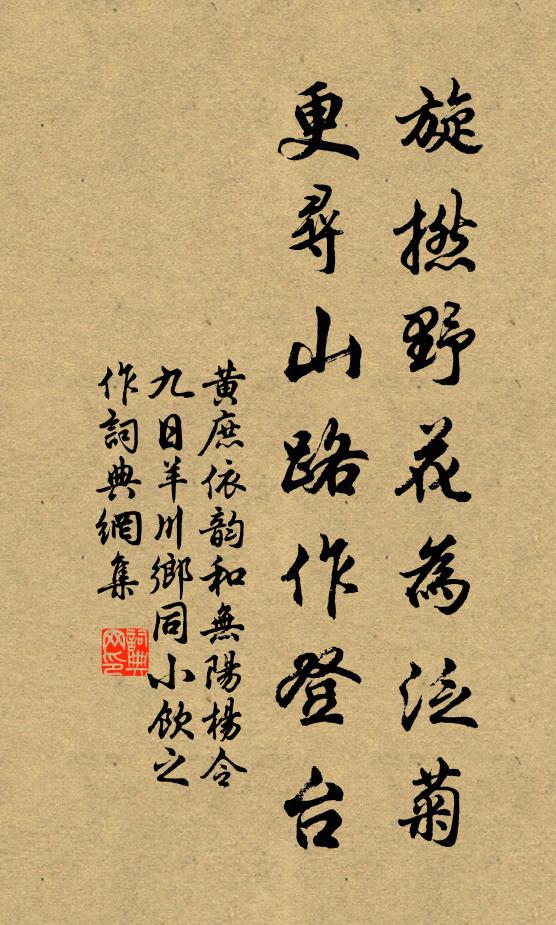 旋撚野花為泛菊
更尋山路作登台
黃庶依韵和無陽楊令
九日羊川鄉同小飲之
作詞典網集
詞典
网印